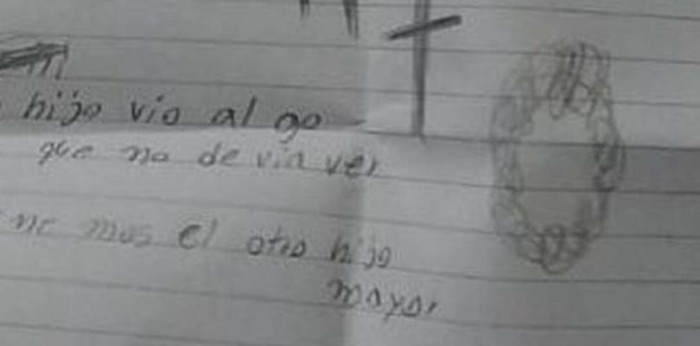 hijo vio al go
que no de via ver
ne mos el otro hijo
mayor